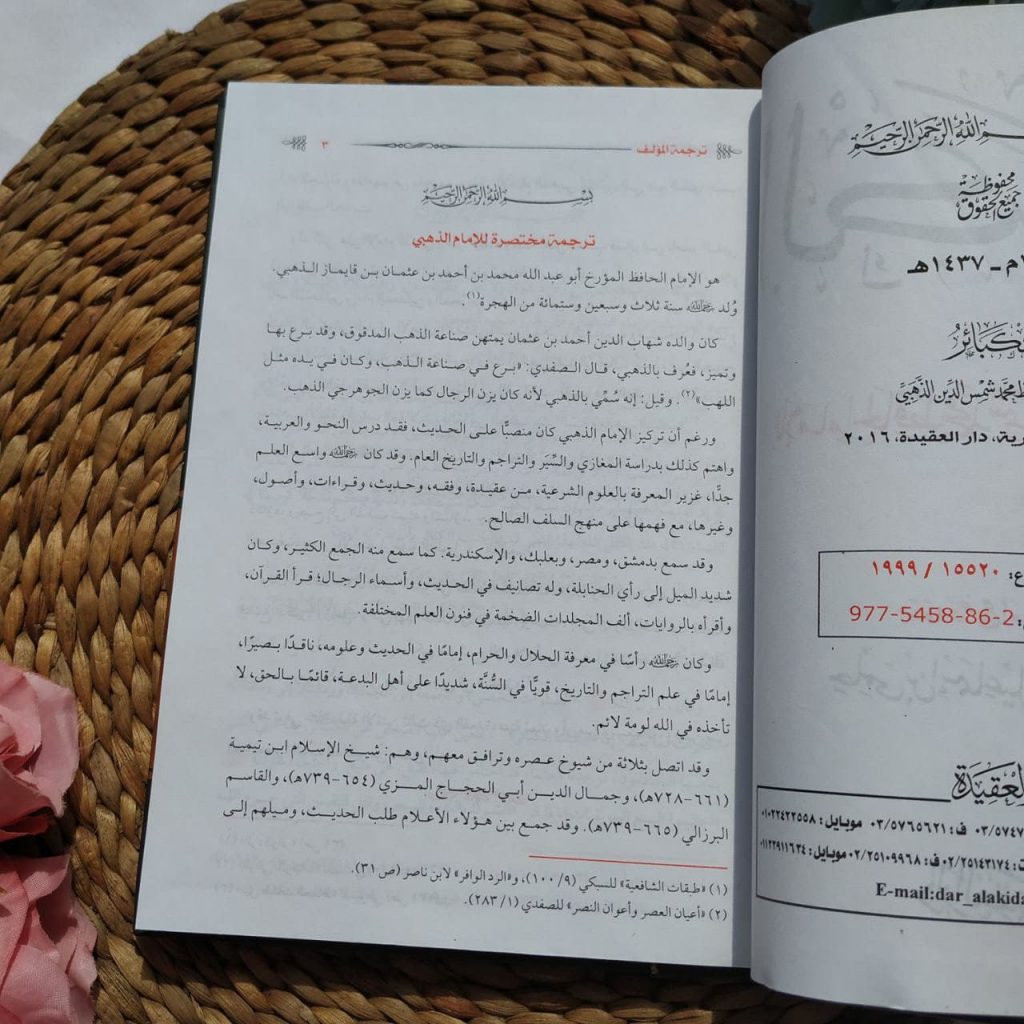 بسم الله الرحمن الرحيم
جميع الحقوق
محفوظة
م - ١٤٣٧هـ
محمد شمس الدين الذهبي
دار العقيدة، ٢٠١٦
١٥٥٢٠ / ١٩٩٩
977-5458-86-2
العقيدة
ف: ٠٣/٥٧٦٥٦٢١ موبايل: ٠١٠٢٢٤٢٢٥٥٨
٠٢/٢٥١٤٣١٧٤ ف: ٠٢/٢٥١٠٩٩٦٨ موبايل: ٠١١٢٢٩١١٦٣٤
E-mail:dar_alakida
ترجمة المؤلف ٣
بسم الله الرحمن الرحيم
ترجمة مختصرة للإمام الذهبي
هو الإمام الحافظ المؤرخ أبو عبد الله محمد بن أحمد بن عثمان بن قايماز الذهبي.
وُلد رحمه الله سنة ثلاث وسبعين وستمائة من الهجرة(١).
كان والده شهاب الدين أحمد بن عثمان يمتهن صناعة الذهب المدقوق، وقد برع بها
وتميز، فعُرف بالذهبي، قال الصفدي: «برع في صناعة الذهب، وكان في يده مثل
اللهب»(٢). وقيل: إنه سُمِّي بالذهبي لأنه كان يزن الرجال كما يزن الجوهرجي الذهب.
ورغم أن تركيز الإمام الذهبي كان منصبًّا على الحديث، فقد درس النحو والعربية،
واهتم كذلك بدراسة المغازي والسِّيَر والتراجم والتاريخ العام. وقد كان رحمه الله واسع العلم
جدًّا، غزير المعرفة بالعلوم الشرعية، من عقيدة، وفقه، وحديث، وقراءات، وأصول،
وغيرها، مع فهمها على منهج السلف الصالح.
وقد سمع بدمشق، ومصر، وبعلبك، والإسكندرية. كما سمع منه الجمع الكثير، وكان
شديد الميل إلى رأي الحنابلة، وله تصانيف في الحديث، وأسماء الرجال؛ قرأ القرآن،
وأقرأه بالروايات، ألف المجلدات الضخمة في فنون العلم المختلفة.
وكان رحمه الله رأسًا في معرفة الحلال والحرام، إمامًا في الحديث وعلومه، ناقدًا بصيرًا،
إمامًا في علم التراجم والتاريخ، قويًّا في السُّنَّة، شديدًا على أهل البدعة، قائمًا بالحق، لا
تأخذه في الله لومة لائم.
وقد اتصل بثلاثة من شيوخ عصره وترافق معهم، وهم: شيخ الإسلام ابن تيمية
(٦٦١-٧٢٨هـ)، وجمال الدين أبي الحجاج المزي (٦٥٤-٧٣٩هـ)، والقاسم
البرزالي (٦٦٥-٧٣٩هـ). وقد جمع بين هؤلاء الأعلام طلب الحديث، وميلهم إلى
(١) «طبقات الشافعية» للسبكي (٩/ ١٠٠)، و«الرد الوافر» لابن ناصر (ص ٣١).
(٢) «أعيان العصر وأعوان النصر» للصفدي (١/ ٢٨٣).